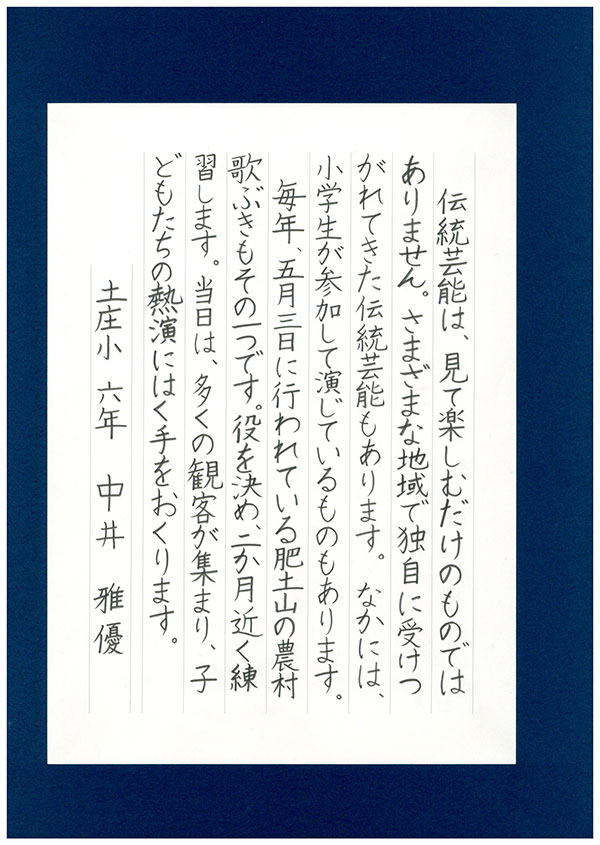 伝統芸能は、見て楽しむだけのものでは
ありません。さまざまな地域で独自に受けつ
がれてきた伝統芸能もあります。なかには、
小学生が参加して演じているものもあります。
毎年、五月三日に行われている肥土山の農村
歌ぶきもその一つです。役を決め、二か月近く練
習します。当日は、多くの観客が集まり、子
どもたちの熱演にはく手をおくります。
土庄小 六年 中井 雅優